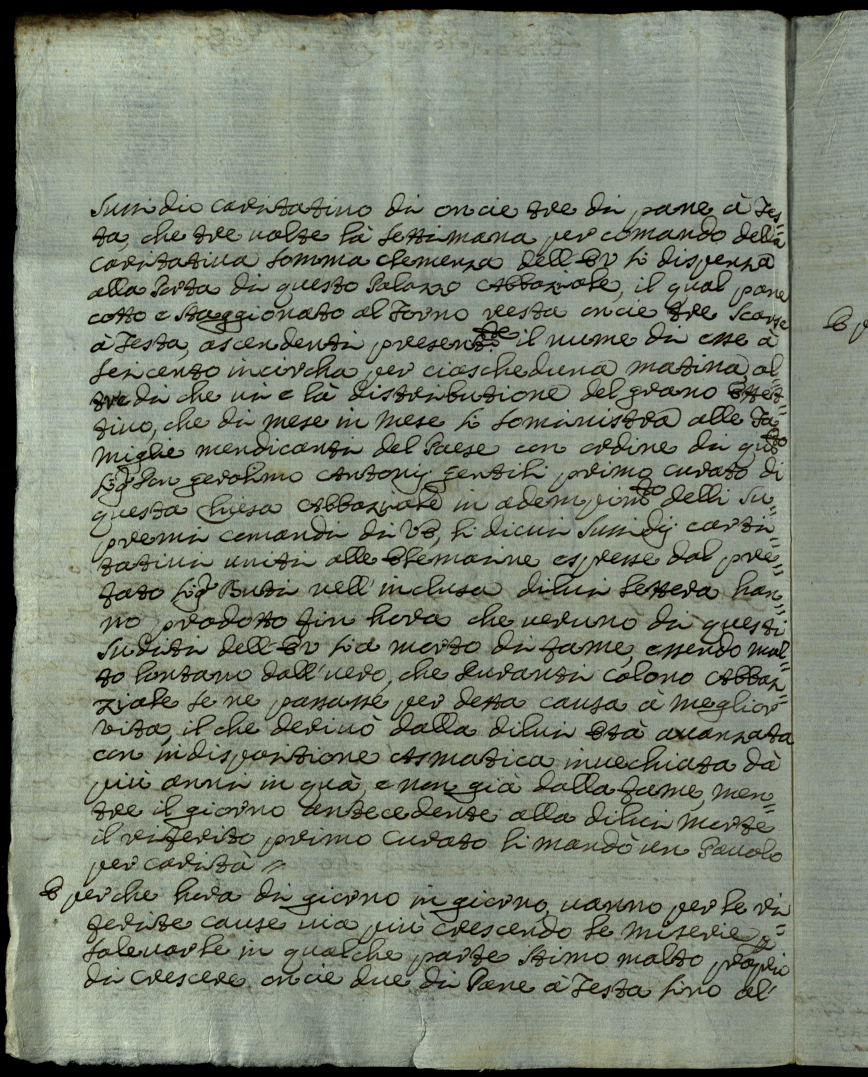 Sussidio caritativo di oncie tre di pane à Tes=
ta, che tre volte là settimana per comando della
caritativa somma clemenza dell'EV si dispenza
alla Porta di questo Palazzo Abbaziale, il qual pane
cotto e staggionato al Forno resta oncie tre scarse
à Testa, ascendenti presentte il nume di esse à
seicento incircha per ciascheduna matina, ol=
tre di che vi e là distributione del grano
tivo, che di mese in mese si soministra alle Fa=
miglie mendicanti del Paese con ordine di qto
Sigr Don Gerolimo Antonij Gentili primo curato di
questa Chiesa Abbaziale in adempimto delli Su=
premi comandi di VE, li dicui Sussidij carita=
tativi uniti alle Elemosine espresse dal pre=
fato Sigr Buti nell'inclusa dilui lettera han=
no prodotto fin hora che veruno di questi
Suditi dell'EV sia morto di fame, essendo mol=
to lontano dall'vero, che Duranti colono Abbaz=
ziale se ne passasse per detta causa à meglior
vita, il che derivò dalla dilui Età avanzata
con indispositione Asmatica invechiata dà
più anni in quà, e non già dalla fame, men=
tre il giorno antecedente alla dilui morte
il riferito primo Curato li mandò un Pavolo
per carità
E perche hora di giorno in giorno vanno per le ri=
ferite cause via più crescendo le miserie, à
solevarle in qualche parte stimo molto proprio
di crescere oncie due di Pane à Testa sino al'
E p